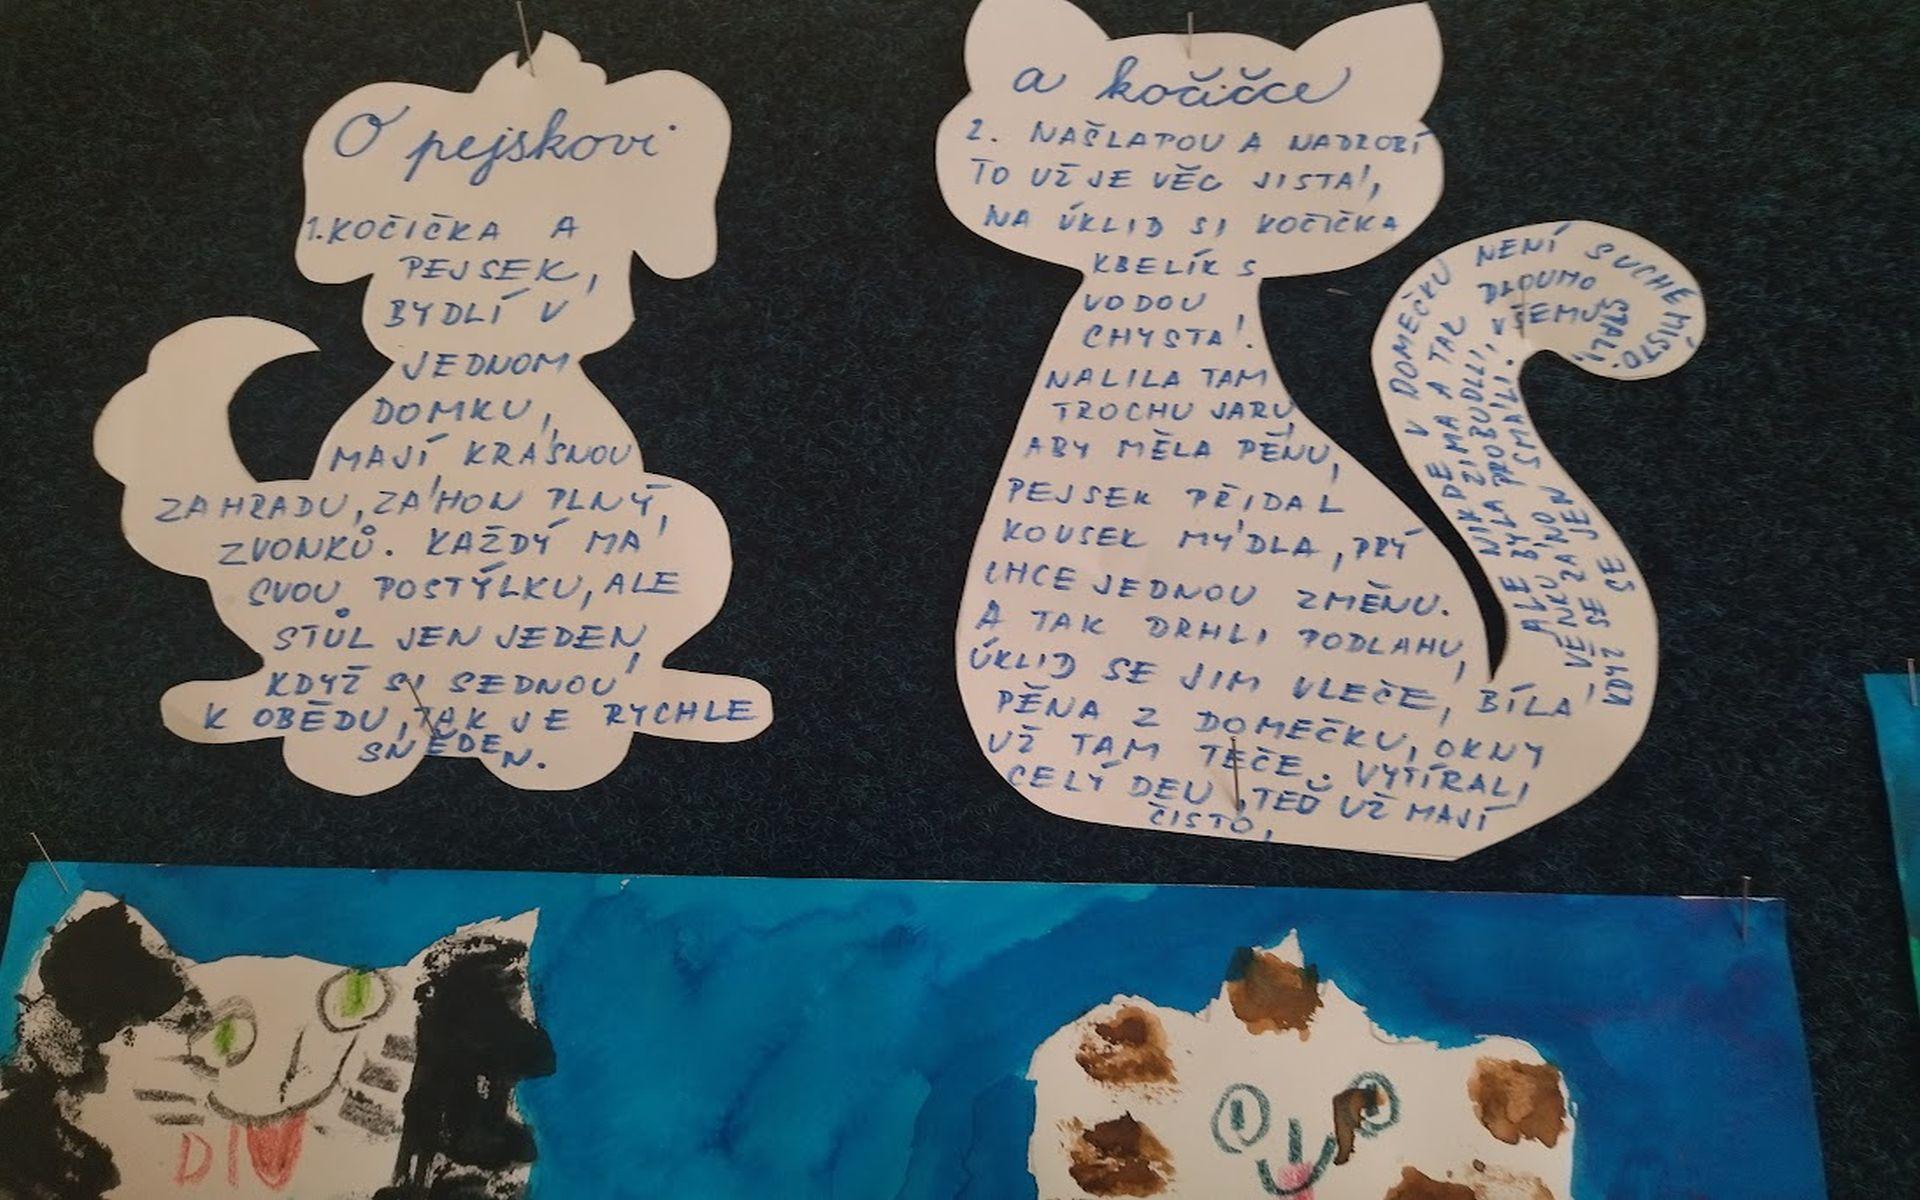 O pejskovi
1. KOČIČKA A
PEJSEK,
BYDLÍ V
JEDNOM
DOMKU,
MAJÍ KRÁSNOU
ZAHRADU, ZÁHON PLNÝ
ZVONKŮ. KAŽDÝ MÁ
SVOU POSTÝLKU, ALE
STŮL JEN JEDEN,
KDYŽ SI SEDNOU
K OBĚDU, TAK JE RYCHLE
SNĚDEN.
a kočičce
2. NAŠLAPOU A NADROBÍ
TO UŽ JE VĚC JISTÁ,
NA ÚKLID SI KOČIČKA
KBELÍK S
VODOU
CHYSTÁ.
NALILA TAM
TROCHU JARU,
ABY MĚLA PĚNU,
PEJSEK PŘIDAL
KOUSEK MÝDLA, PRÝ
CHCE JEDNOU ZMĚNU.
A TAK DRHLI PODLAHU,
ÚKLID SE JIM VLEČE, BÍLÁ
PĚNA Z DOMEČKU, OKNY
UŽ TAM TEČE. VYTÍRALI
CELÝ DEN, TEĎ UŽ MAJÍ
ČISTO,
ALE NIKDE V DOMEČKU NENÍ SUCHÉ MÍSTO.
VENKU BYLA ZIMA A TAK DLOUHO
STÁLI,
KDYŽ SE
DIV